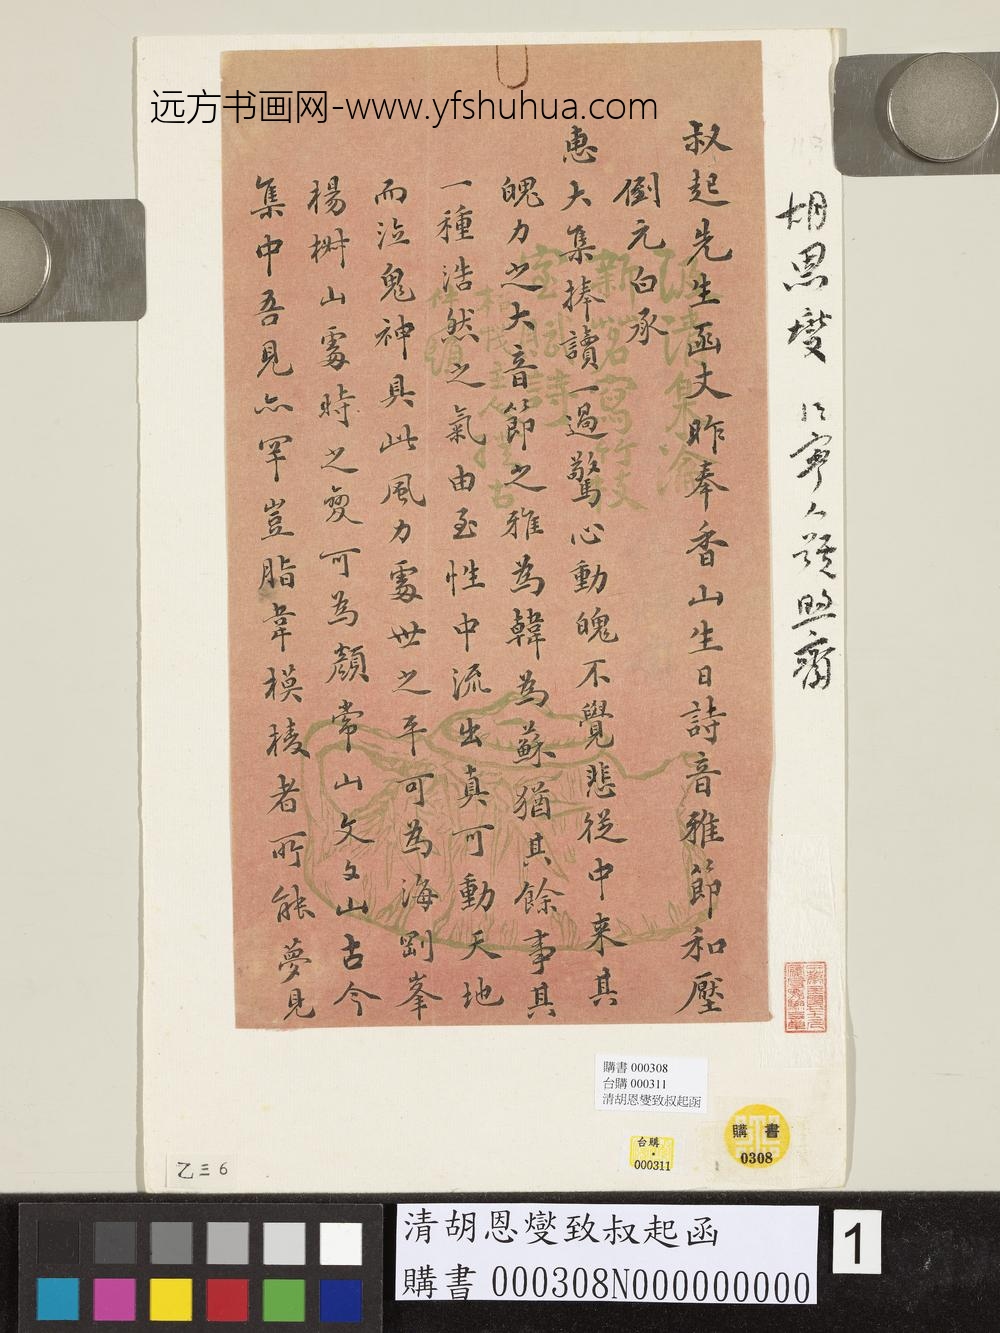 远方书画网-www.yfshuhua.com
叔起先生函丈昨奉香山生日詩音雅節和壓
倒元白承
惠大集捧讀一過驚心動魄不覺悲從中来其
魄力之大音節之雅為韓為蘇猶其餘事其
一種浩然之氣由至性中流出真可動天地
而泣鬼神具此風力處世之平可為海剛峯
楊椒山處時之變可為顏常山文文山古今
集中吾見亦罕豈脂韋模棱者所能夢見
胡恩燮 江寧人號煦齋
購書 000308
台購 000311
清胡恩燮致叔起函
台購
000311
購書
0308
乙三6
清胡恩燮致叔起函
購書 000308N000000000
1